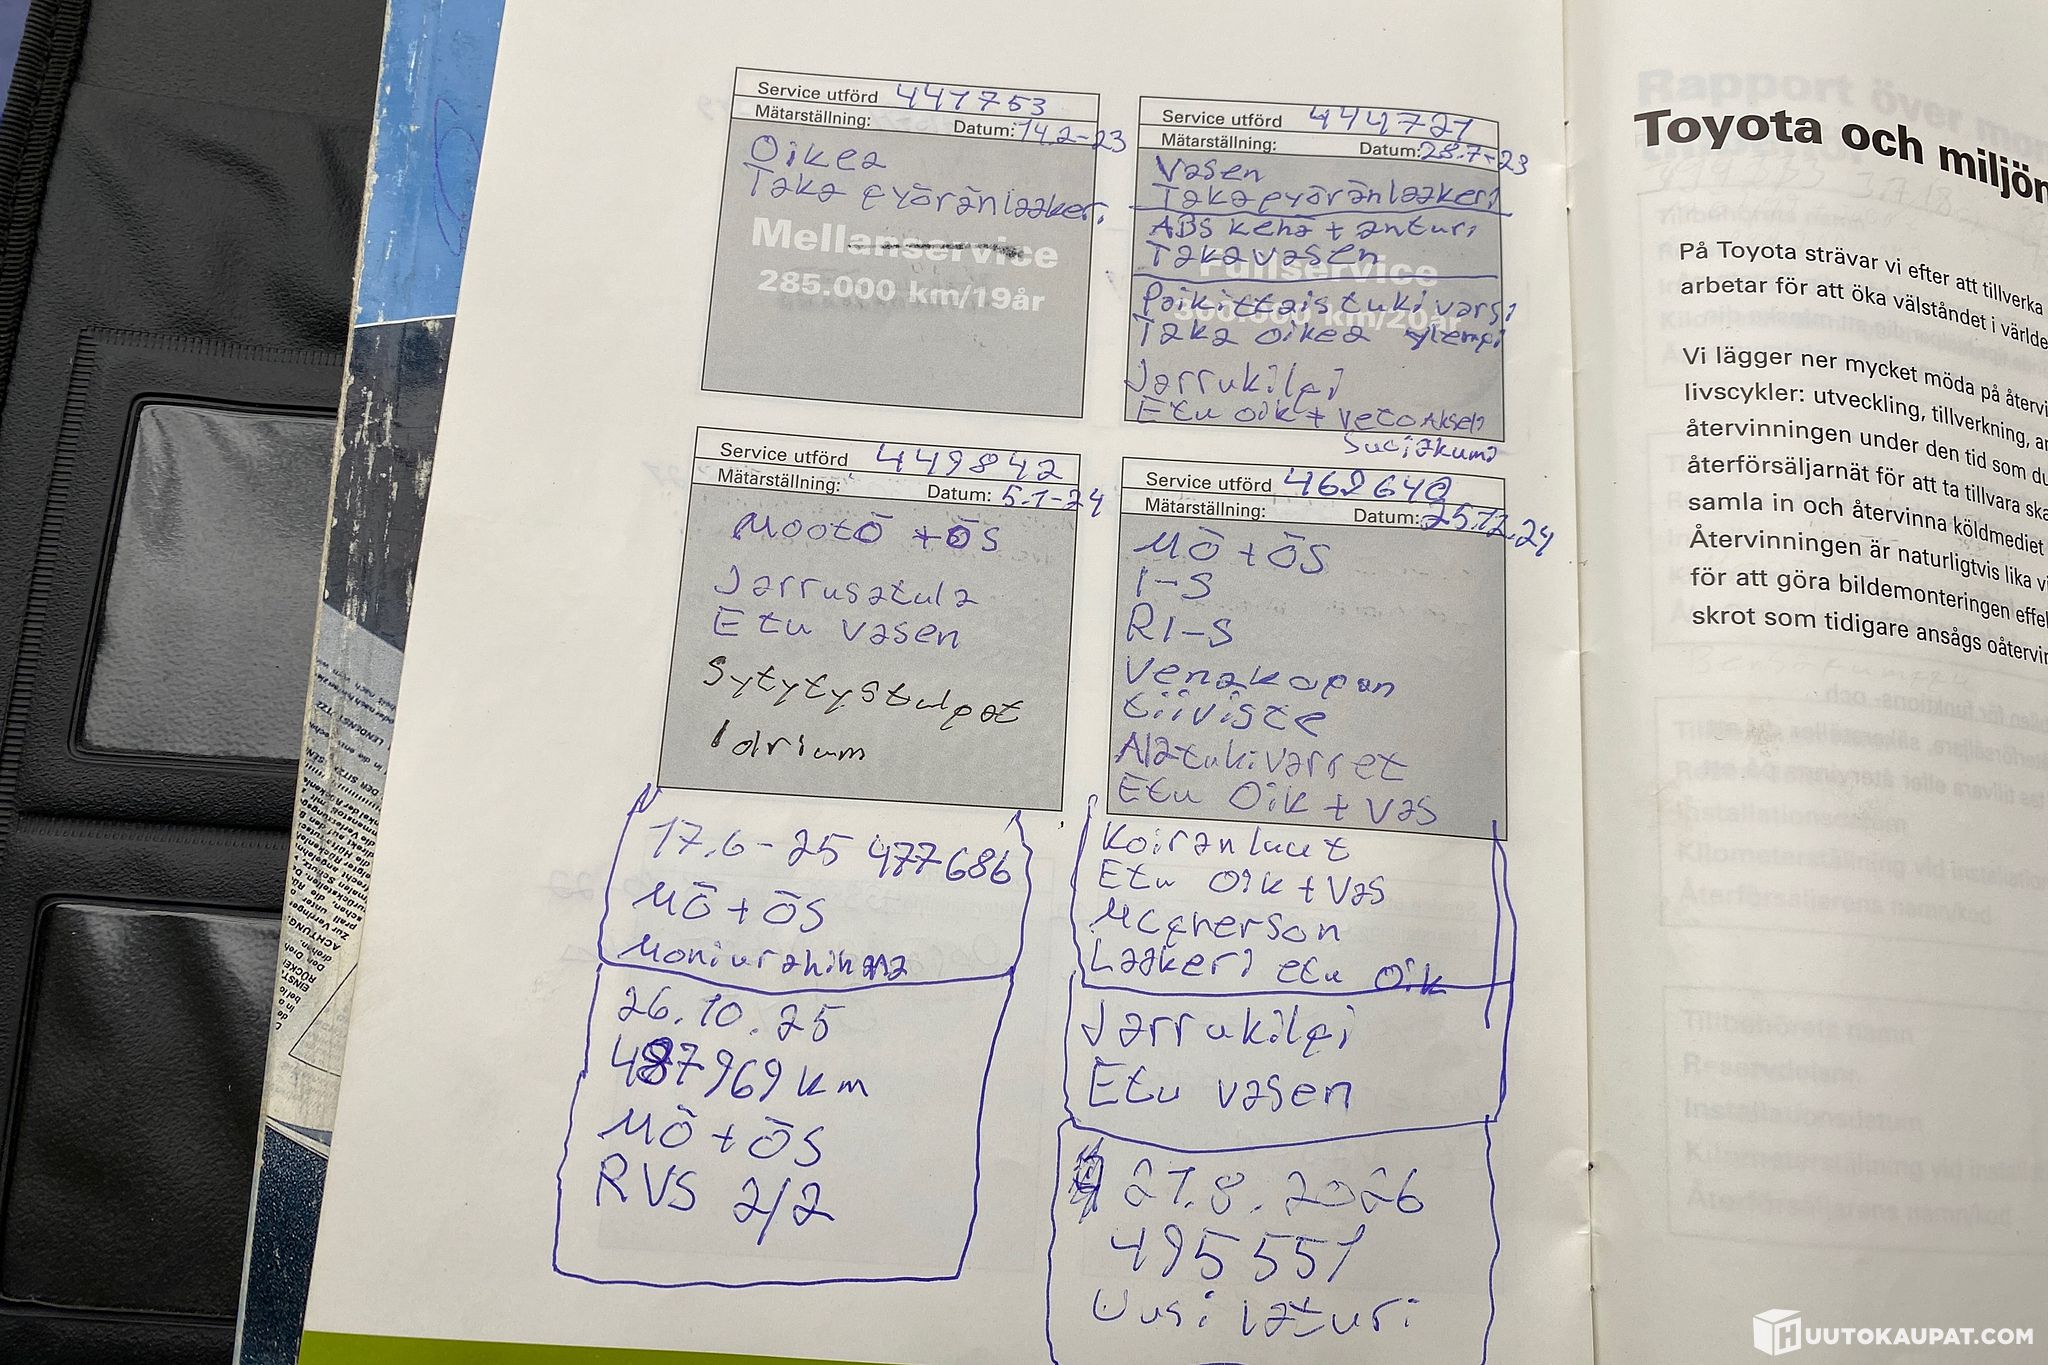 Service utförd 441753
Mätarställning: Datum: 14.2-23
Oikea
Taka pyöränlaakeri
Mellanservice
285.000 km/19år
Service utförd 444721
Mätarställning: Datum: 28.7-23
Vasen
Takapyöränlaakeri
ABS kehä + anturi
Taka vasen
Fullservice
Poikittaistukivarsi
300.000 km/20år
Taka oikea ylempi
Jarrukilpi
Etu oik + vetoakseli
Suojakumi
Service utförd 449842
Mätarställning: Datum: 5.1-24
Mootö + ös
Jarrusatula
Etu vasen
Sytytystulpat
Idrium
Service utförd 469640
Mätarställning: Datum: 25.12.24
MÖ + ÖS
I-S
RI-S
Venakopan
tiiviste
Alatukivarret
Etu Oik + Vas
Koiranluut
Etu oik + Vas
Mcpherson
Laakeri etu oik
Jarrukilpi
Etu vasen
17.6-25 477686
MÖ + ÖS
Moniurahihna
26.10.25
487969 km
MÖ + ÖS
RVS 2/2
27.8.2026
495551
Uusi laturi
Toyota och miljön
På Toyota strävar vi efter att tillverka
arbetar för att öka välståndet i världe
Vi lägger ner mycket möda på återvi
livscykler: utveckling, tillverkning, an
återvinningen under den tid som du
återförsäljarnät för att ta tillvara ska
samla in och återvinna köldmediet
Återvinningen är naturligtvis lika vi
för att göra bildemonteringen effel
skrot som tidigare ansågs oåtervin
HUUTOKAUPAT.COM